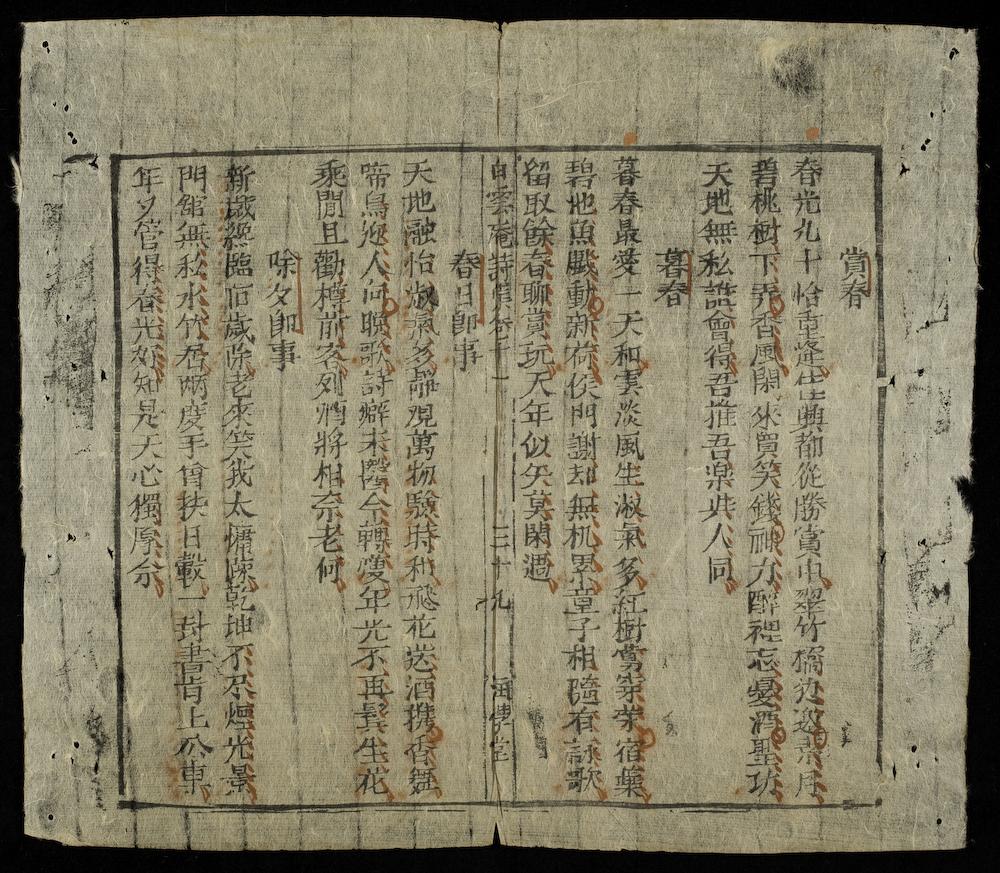 賞春
春光九十恰重逢佳興都從勝賞中翠竹橋边邀素月
碧桃樹下弄香風閑來買笑錢神力醉裡忘憂酒聖功
天地無私誰會得吾推吾楽共人同
暮春
暮春最愛一天和雲淡風生淑氣多紅樹鶯穿荣宿藥
碧地魚戲動新荷侯門謝却無机累童子相隨有詠歌
留取餘春聊賞玩天年似矢莫閑過
白雲庵詩集卷之一 三十九 海學堂
春日即事
天地融怡淑氣多靜觀萬物驗時和飛花送酒携香舞
啼鳥迎人向晚歌詩癖未醫今轉瘦年光不再鬂生花
乘閒且勸樽前客列爵將相奈老何
除夕即事
新歲纔臨旧歲除老來笑我太慵踈乾坤不尽烟光景
門舘無私水竹居兩度手曾扶日轂一封書肯上公車
年夕管得春光好知是天心獨厚余